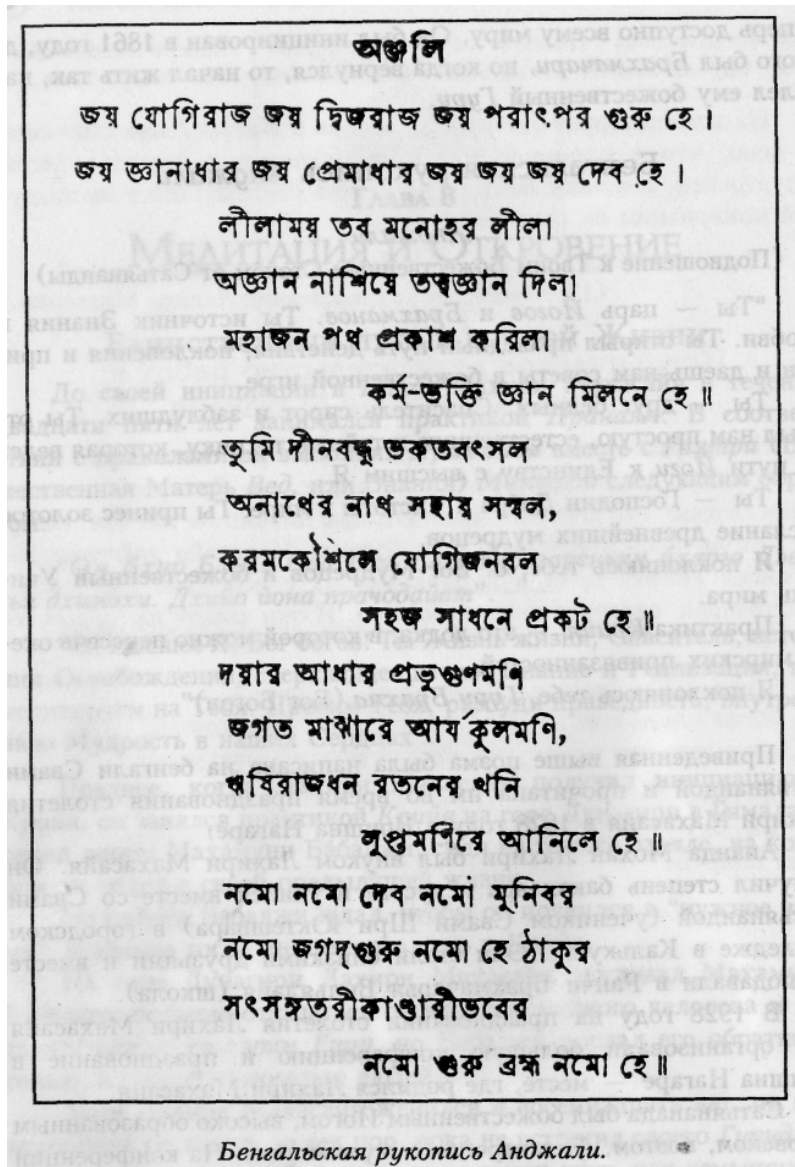 অঞ্জলি
জয় যোগিরাজ জয় দ্বিজরাজ জয় পরাৎপর গুরু হে ।
জয় জ্ঞানাধার জয় প্রেমাধার জয় জয় জয় দেব হে ।
লীলাময় তব মনোহর লীলা
অজ্ঞান নাশিয়ে তত্ত্বজ্ঞান দিলা
মহাজন পথ প্রকাশ করিলা
কর্ম-ভক্তি জ্ঞান মিলনে হে ॥
তুমি দীনবন্ধু ভকতবৎসল
অনাথের নাথ সহায় সম্বল,
করমকৌশলে যোগিজনবল
সহজ সাধনে প্রকট হে ॥
দয়ার আধার প্রভূগুণমণি
জগত মাঝারে আর্য কুলমণি,
ঋষিরাজধন রতনের খনি
লুপ্তমণিরে আনিলে হে ॥
নমো নমো দেব নমো মুনিবর
নমো জগদগুরু নমো হে ঠাকুর
সৎসঙ্গতরীকাণ্ডারীভবের
নমো গুরু ব্রহ্ম নমো হে ॥
Бенгальская рукопись Анджали.